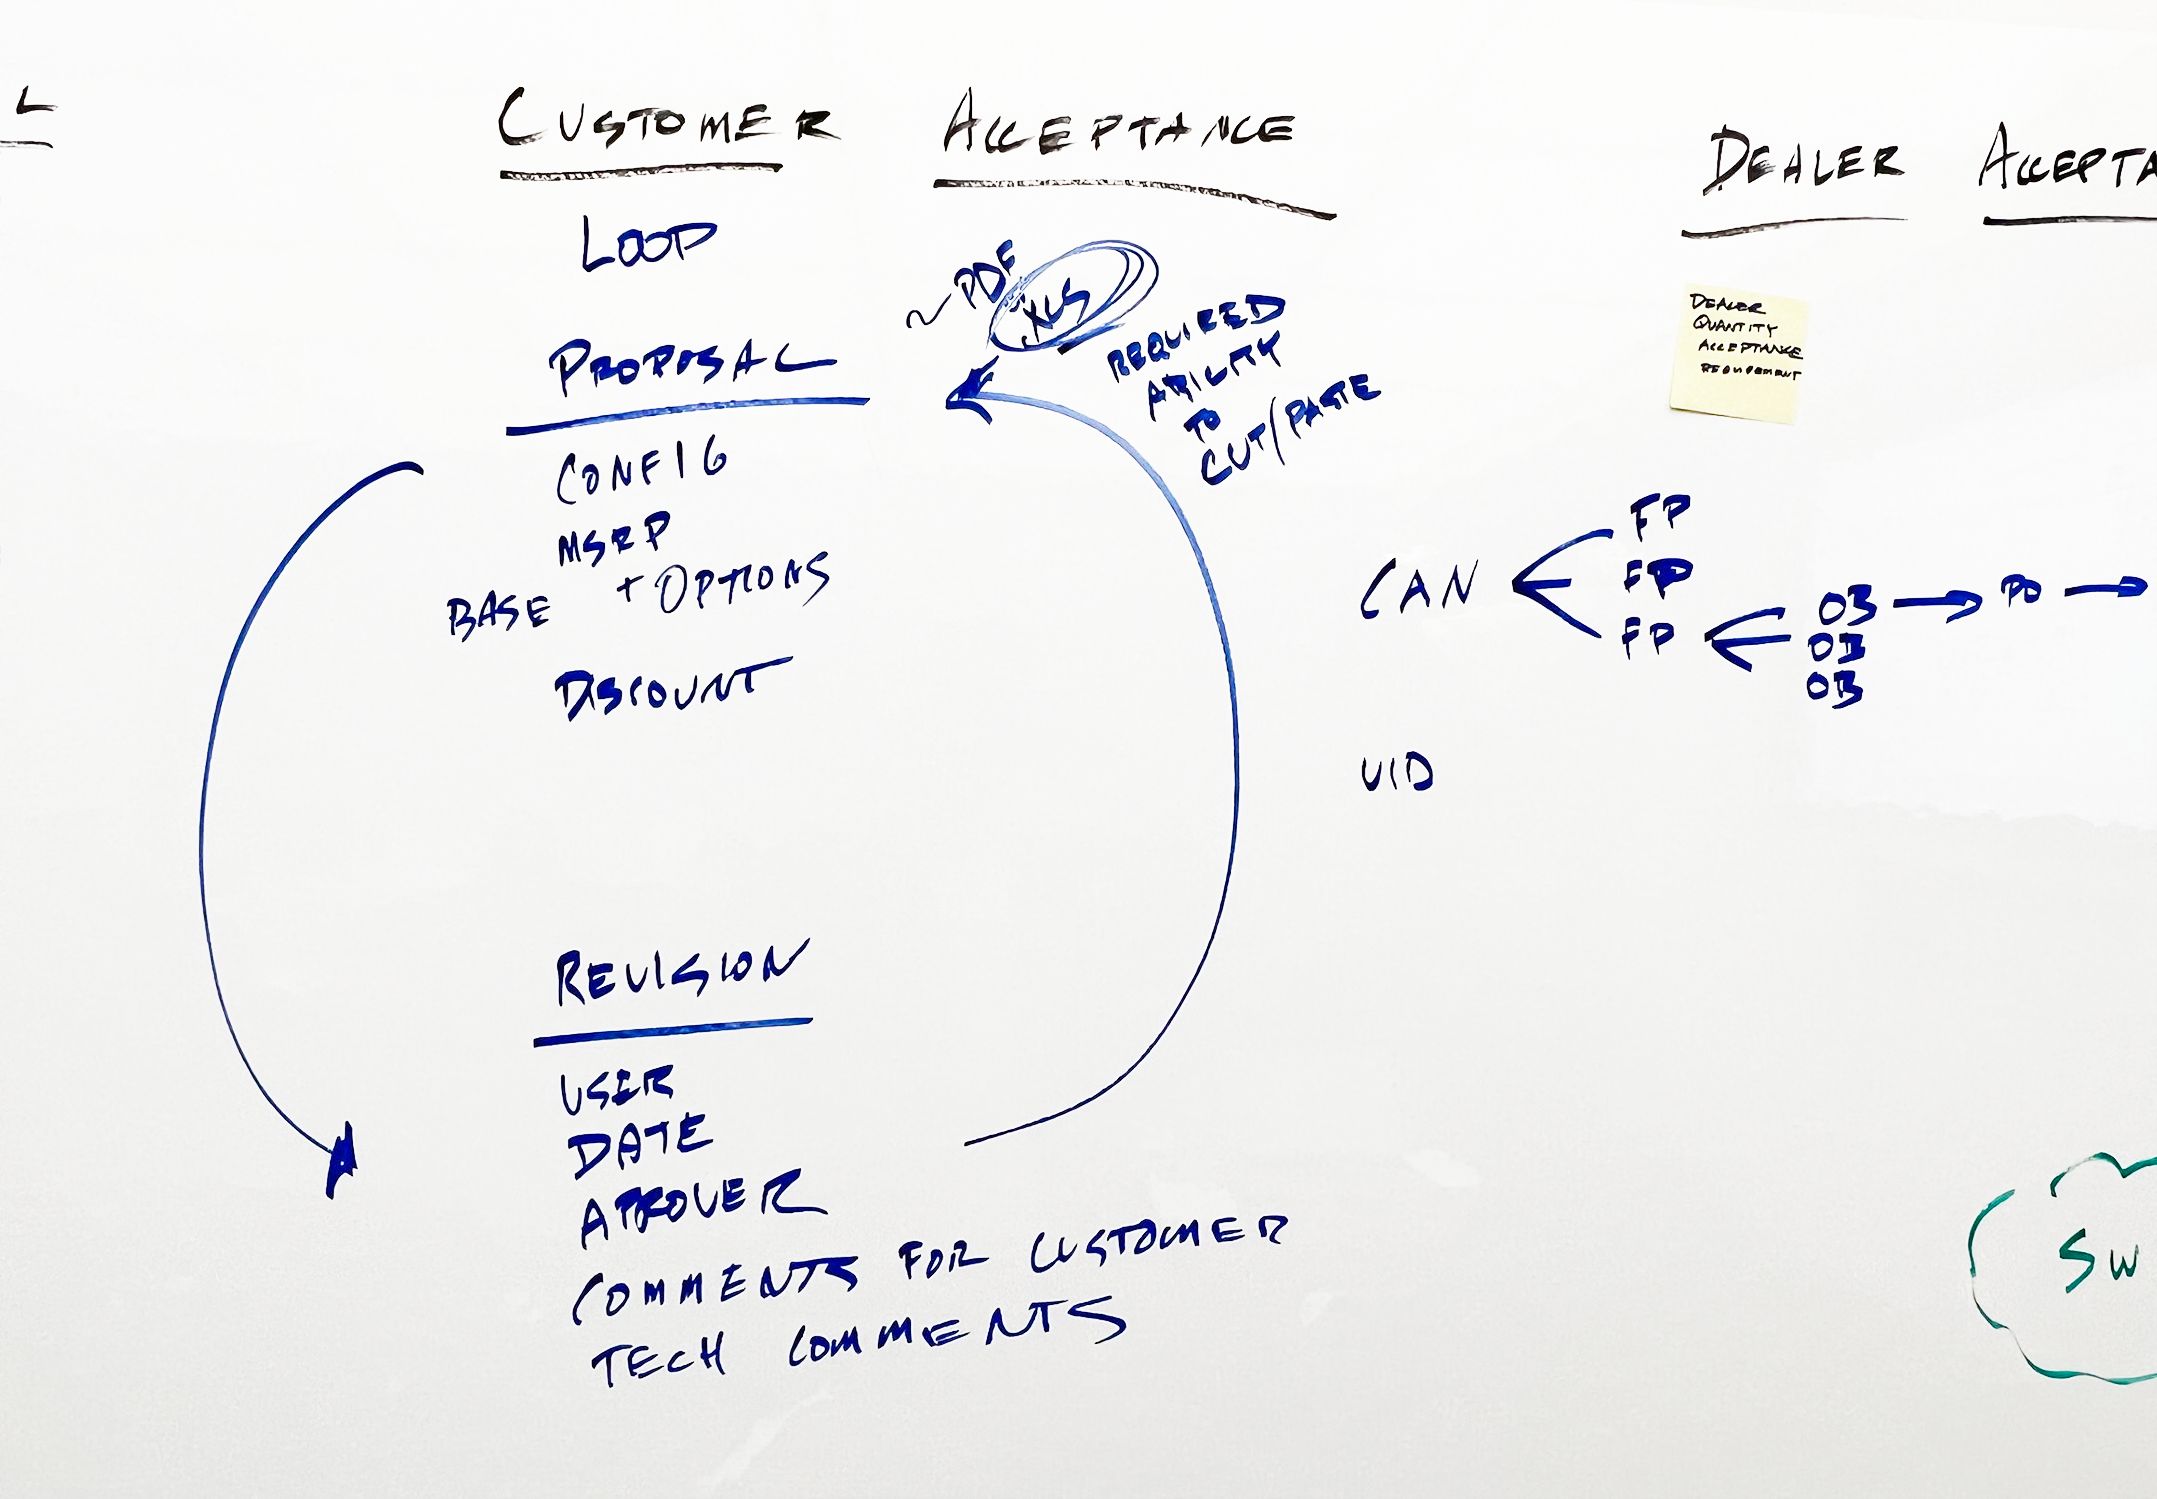 L
CUSTOMER ACCEPTANCE
LOOP
~ PDF
.XLS
REQUIRED
ABILITY
TO
CUT/PASTE
PROPOSAL
CONFIG
MSRP
BASE + OPTIONS
DISCOUNT
REVISION
USER
DATE
APROVER
COMMENTS FOR CUSTOMER
TECH COMMENTS
DEALER ACCEPTA
DEALER
QUANTITY
ACCEPTANCE
REQUIREMENT
CAN
FP
FP
FP
OB
OB
OB
PO
UID
SW